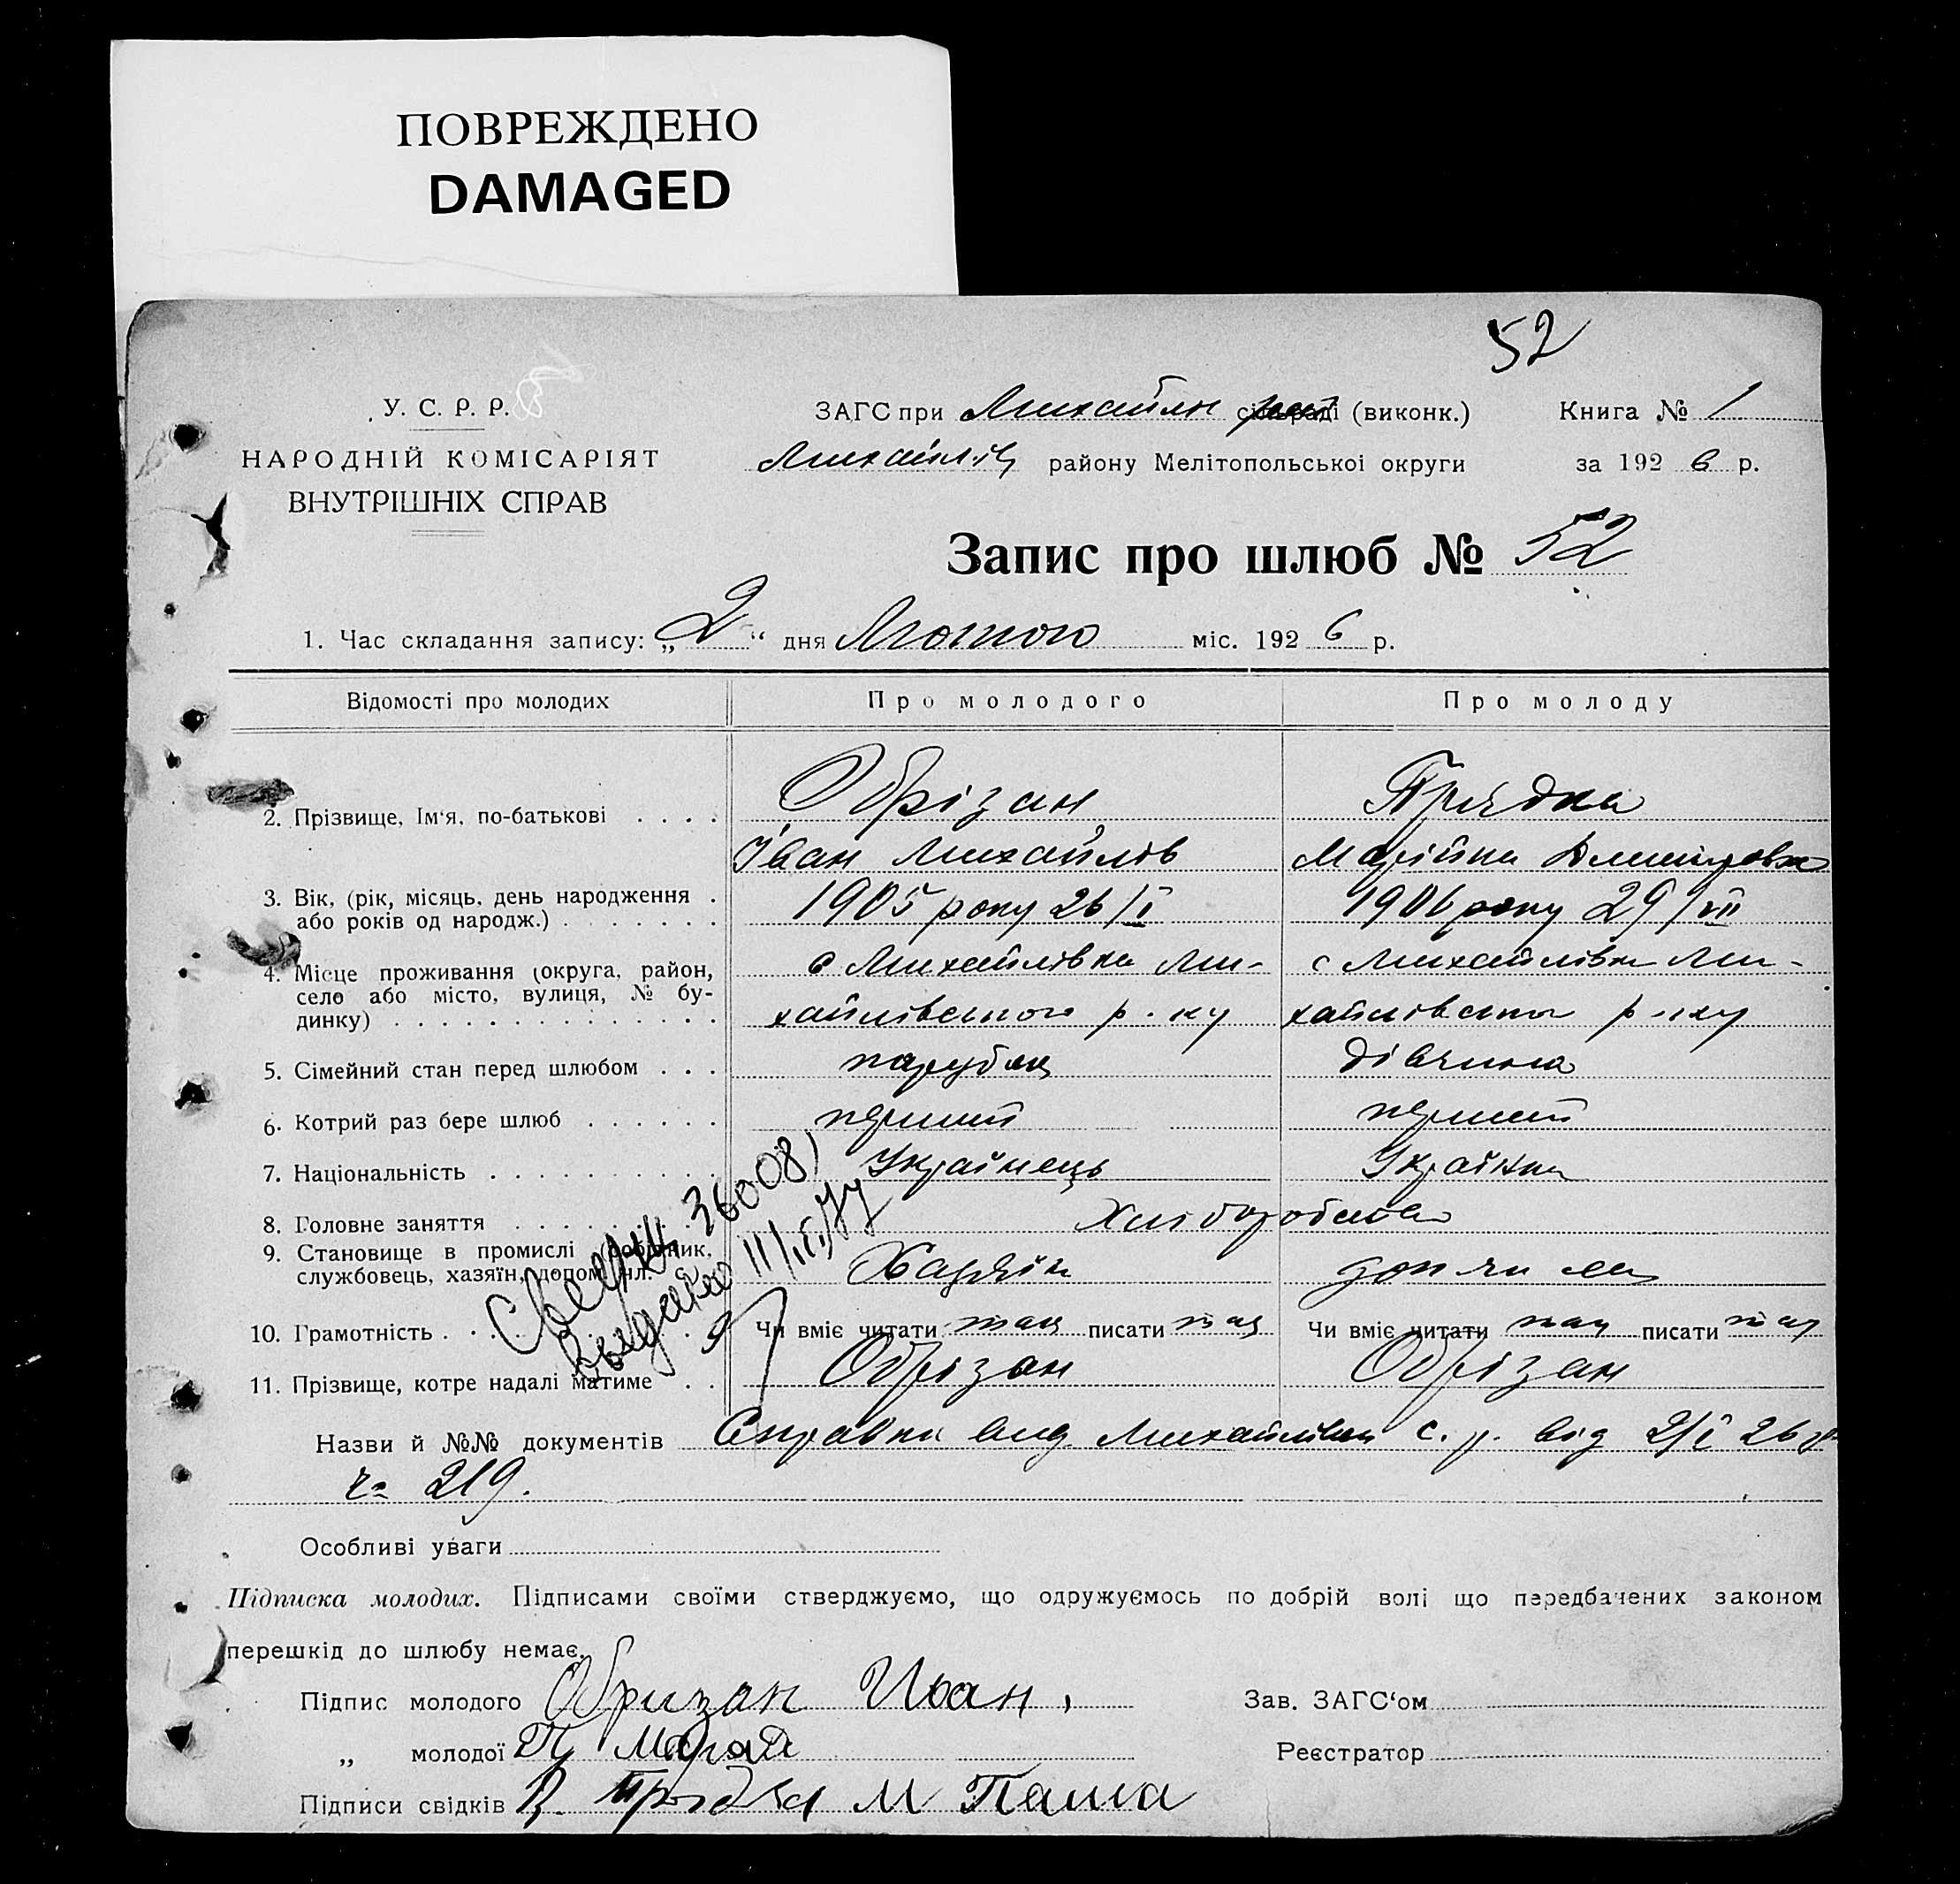 ПОВРЕЖДЕНО
DAMAGED
52
У. С. Р. Р.
НАРОДНІЙ КОМІСАРІЯТ
ВНУТРІШНІХ СПРАВ
ЗАГС при Михайлн сільраді (виконк.)
Михайлів району Мелітопольської округи
Книга № 1
за 1926 р.
Запис про шлюб № 52
1. Час складання запису: „2“ дня Лютого міс. 1926 р.
Відомості про молодих Про молодого Про молоду
2. Прізвище, Ім‘я, по-батькові . . . . Обрізан Прядка
Іван Михайлів Марійка
3. Вік, (рік, місяць, день народження . 1905 року 26/I 1906 року 29/VII
або років од народж.) . . . . . . .
4. Місце проживання (округа, район, с Михайлівка Ми- с Михайлівка Ми-
село або місто, вулиця, № бу-
динку) . . . . . . . . . . . . . . хайлівського р-ну хайлівського р-ну
5. Сімейний стан перед шлюбом . . . парубок дівчина
6. Котрий раз бере шлюб . . . . . . перший перший
7. Національність . . . . . . . . . . Українець Українка
8. Головне заняття . . . . . . . . . Хліборобство
9. Становище в промислі (робітник,
службовець, хазяїн, допом. чл. Хазяїн
10. Грамотність . . . . . . . . . Чи вміє читати так писати так Чи вміє читати так писати так
11. Прізвище, котре надалі матиме . . Обрізан Обрізан
36008
11/I.77
Назви й №№ документів Справка вид. Михайлівск с. р. від 2/I 26 р
чс 219.
Особливі уваги
Підписка молодих. Підписами своїми стверджуємо, що одружуємось по добрій волі що передбачених законом
перешкід до шлюбу немає.
Підпис молодого Обризан Иван.
Зав. ЗАГС‘ом
„ молодої П
Реєстратор
Підписи свідків Прядка М Паша